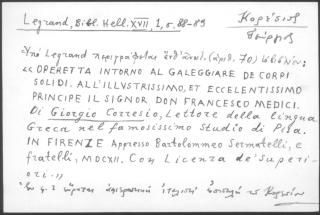 Legrand, Bibl. Hell. XVII, 1, σ. 88-89
Κορέσιος
Γεώργιος
Ὑπὸ Legrand περιγράφεται (ἀριθ. 70)
«OPERETTA INTORNO AL GALEGGIARE DE CORPI
SOLIDI. ALL'ILLVSTRISSIMO, ET ECCELENTISSIMO
PRINCIPE IL SIGNOR DON FRANCESCO MEDICI.
Di Giorgio Corressio, Lettore della lingua
Greca nel famosissimo Studio di Pisa.
IN FIRENZE Appresso Bartolommeo Sermatelli, e
fratelli, MDCXII. Con Licenza de' Superi-
ori.»